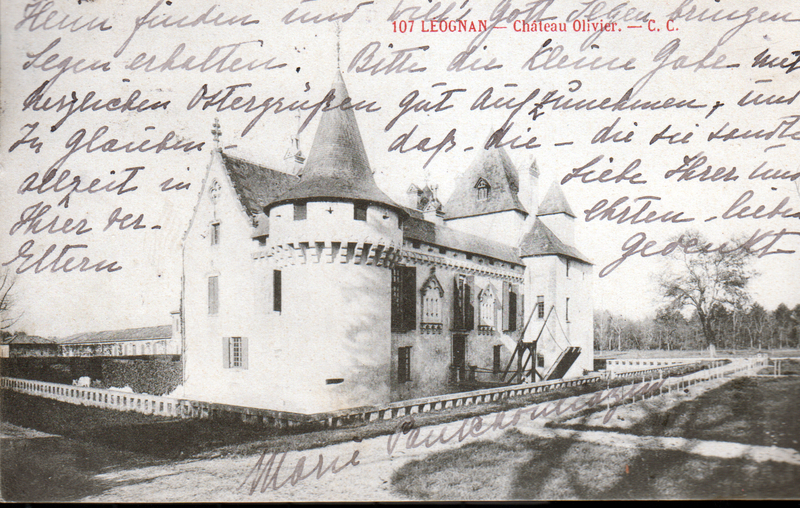 107 LÉOGNAN — Château Olivier. — C. C.
Herrn finden und will's Gott Segen bringen
Segen erhalten. Bitte die kleine Gabe mit
herzlichen Ostergrüßen gut aufzunehmen, und
In glauben - daß - die - die sie sandte
allzeit in Liebe Ihrer und
Ihrer ver- ehrten - lieben
Eltern gedenkt
Marie